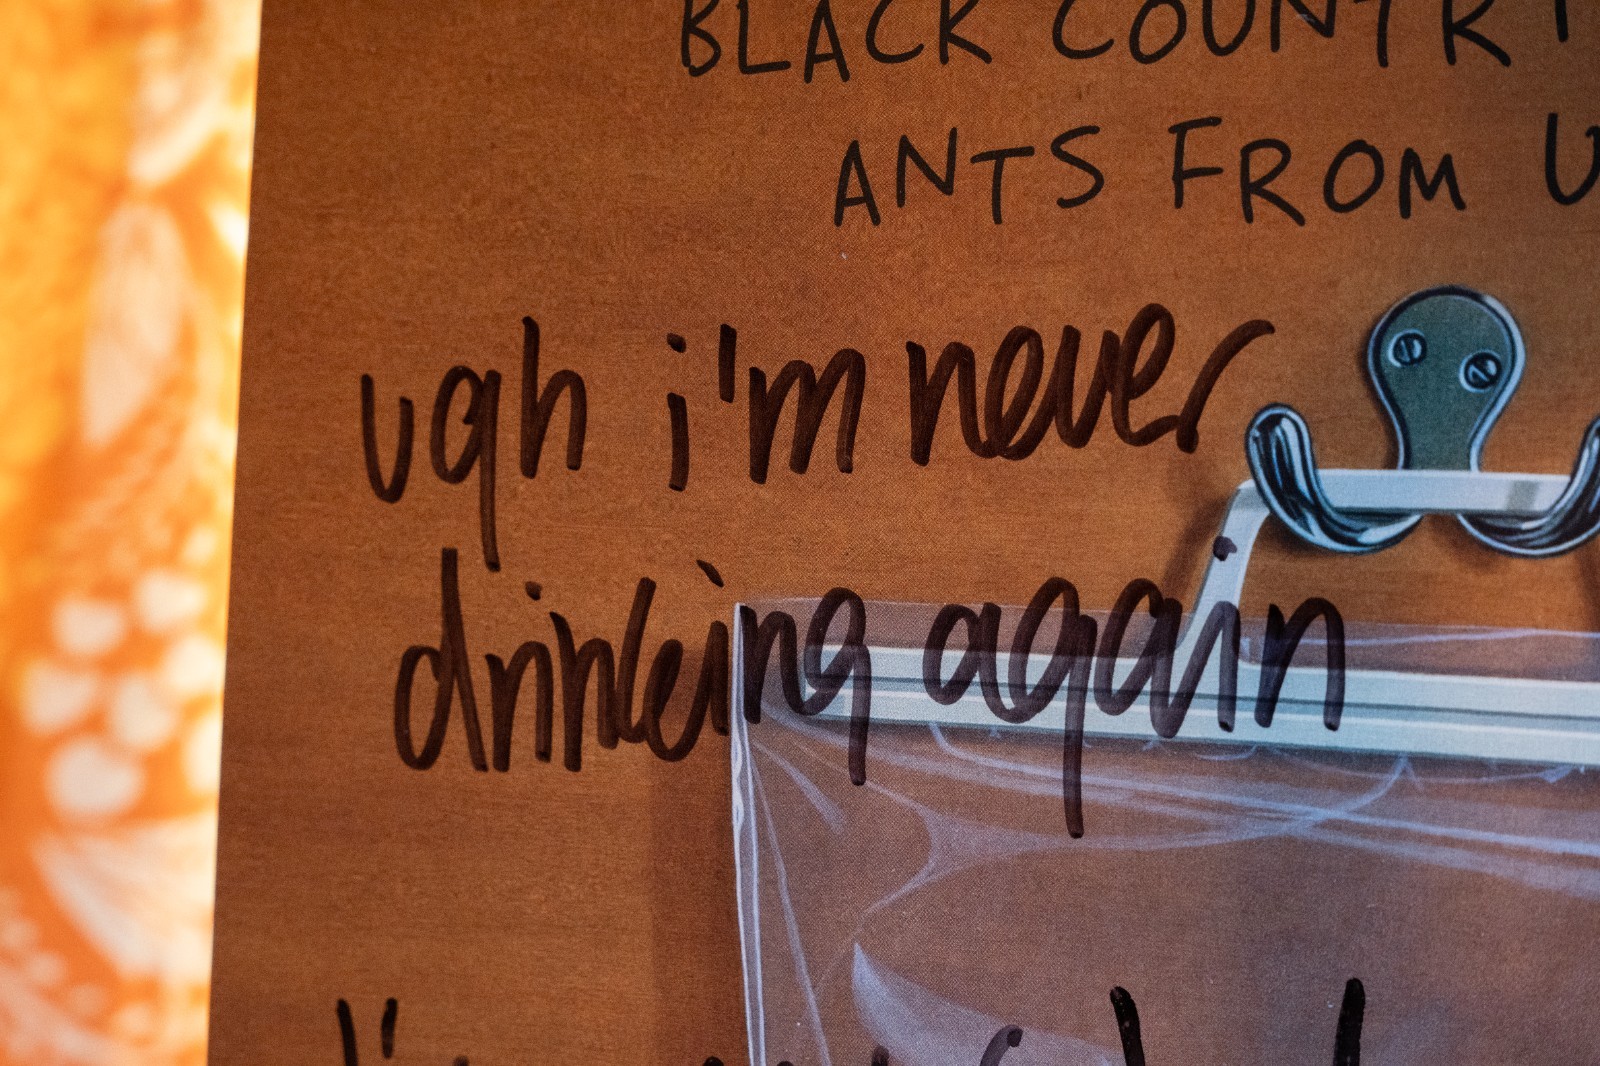 BLACK COUNTR
ANTS FROM U
ugh i'm never
drinking again